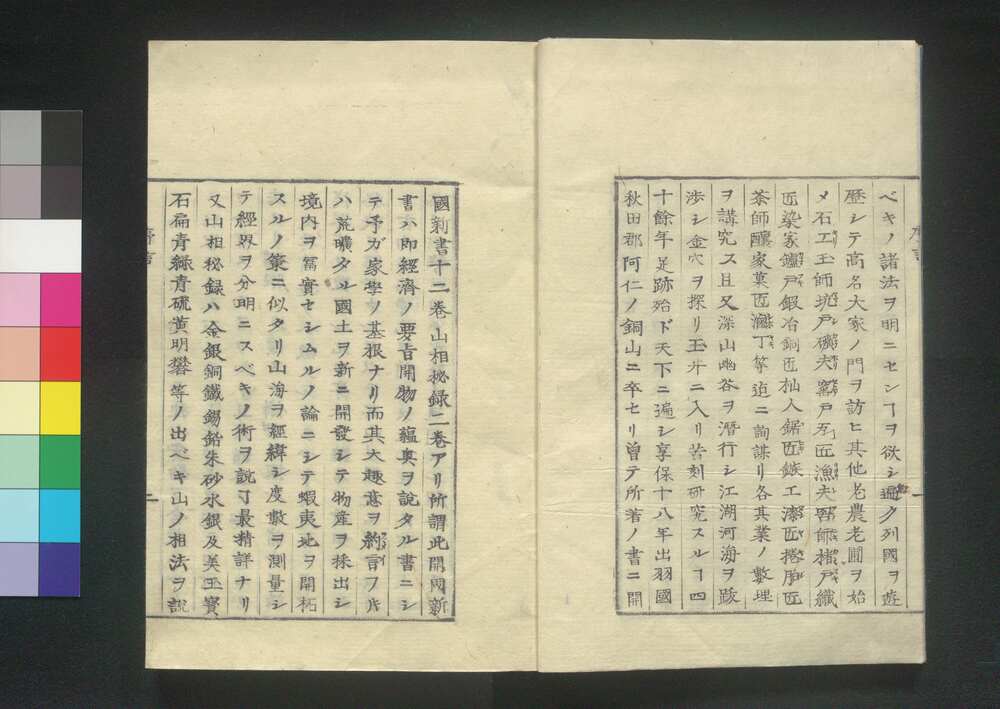 ベキノ諸法ヲ明ニセンヿヲ欲シ遍ク列國ヲ遊
歷シテ高名大家ノ門ヲ訪ヒ其他老農老圃ヲ始
メ石工玉師坑戸礦夫窰戸瓦匠漁夫醫師楮戸織
匠染家鑪戸鍛冶銅匠杣人鋸匠鏃工漆匠捲胎匠
茶師釀家菓匠 丁等迄ニ詢謀リ各其業ノ數理
ヲ講究ス且又深山幽谷ヲ潛行シ江湖河海ヲ跋
渉シ金穴ヲ探リ玉井ニ入リ苦刻研究スルヿ四
十餘年足跡殆ド天下ニ遍シ享保十八年出羽國
秋田郡阿仁ノ銅山ニ卒セリ曾テ所著ノ書ニ開
國新書十二卷山相秘録二卷アリ所謂此開國新
書ハ即經濟ノ要旨開物ノ蘊奥ヲ說タル書ニシ
テ予ガ家學ノ基根ナリ而其大趣意ヲ約言フトキ
ハ荒曠タル國土ヲ新ニ開發シテ物産ヲ採出シ
境内ヲ冨實セシムルノ論ニシテ蝦夷地ヲ開柘
スルノ策ニ似タリ山海ヲ經緯シ度數ヲ測量シ
テ經界ヲ分明ニスベキノ術ヲ說ヿ最精詳ナリ
又山相秘録ハ金銀銅鐵錫鉛朱砂水銀及美玉寳
石扁青緑青硫黄明礬等ノ出ベキ山ノ相法ヲ說